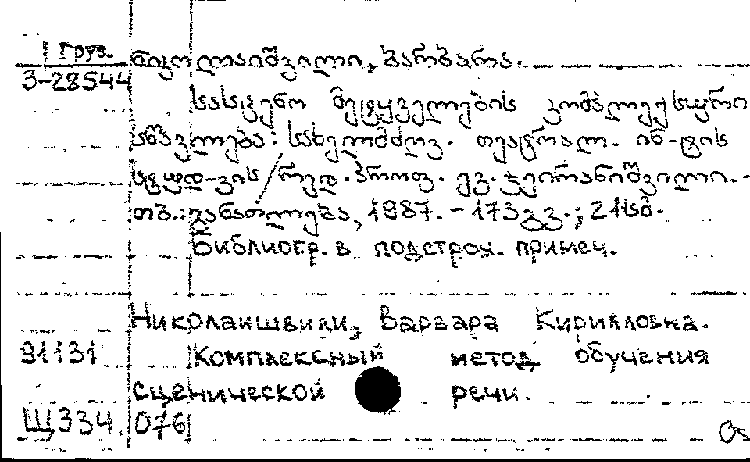 Груз.
3-28544 ნიკოლაიშვილი, ბარბარა.
სასცენო მეტყველების კომპლექსური
სწავლება: სახელმძღვ. თეატრალ. ინ-ტის
სტუდ-ვის / რედ. პროფ. ეგ. ჯეირანიშვილი. -
თბ.: განათლება, 1987. - 173 გვ.; 21 სმ.
Библиогр. в подстроч. примеч.
Николаишвили, Варвара Кирилловна.
91131 Комплексный метод обучения
сценической речи.
Щ334.076